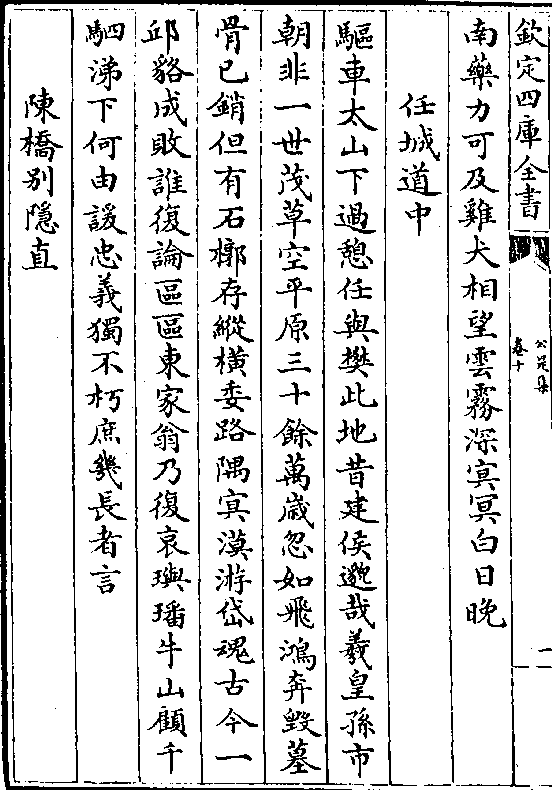 欽定四庫全書
公是集
卷十
一
南藥力可及雞犬相望雲霧深㝠㝠白日晚
任城道中
驅車太山下過憩任與樊此地昔建侯邈哉羲皇孫市
朝非一世茂草空平原三十餘萬歲忽如飛鴻奔毀墓
骨已銷但有石槨存縱橫委路隅㝠漠游岱魂古今一
邱貉成敗誰復論區區東家翁乃復哀璵璠牛山顧千
駟涕下何由諼忠義獨不朽庶幾長者言
陳橋别隱直